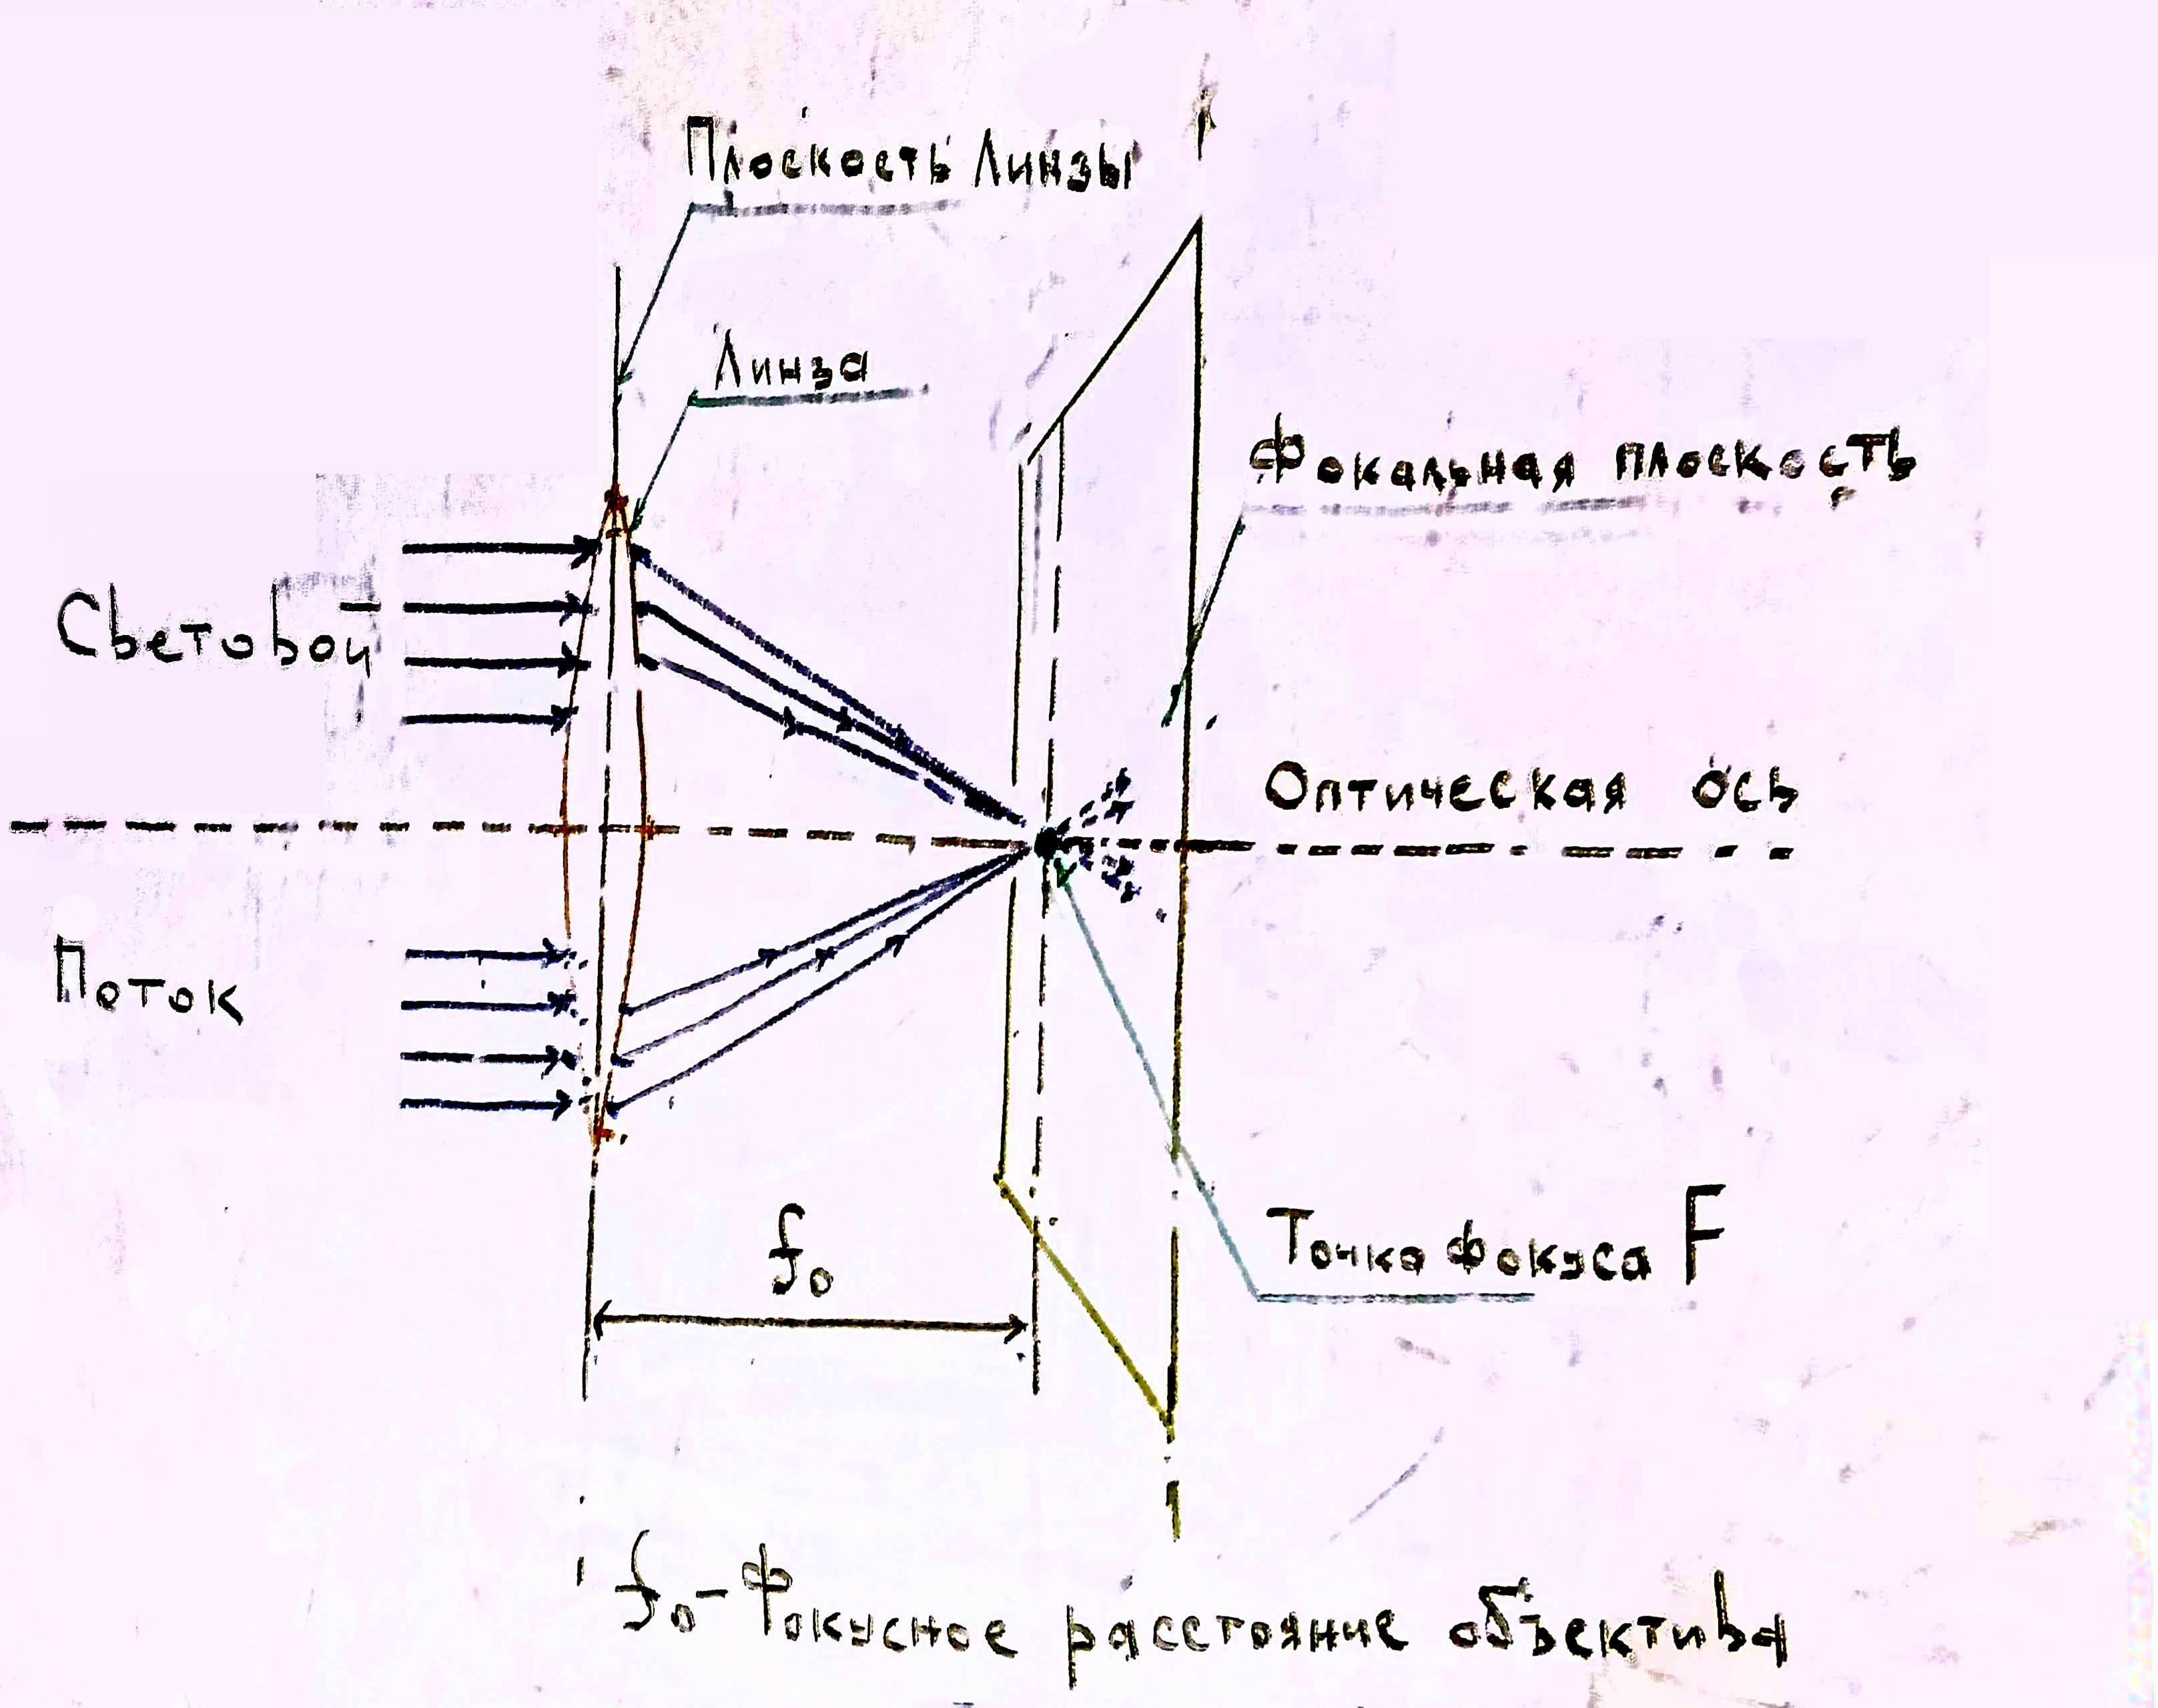 Плоскость Линзы
Линза
Фокальная плоскость
Световой
Оптическая ось
Поток
Точка фокуса F
fo
fo - Фокусное расстояние объектива